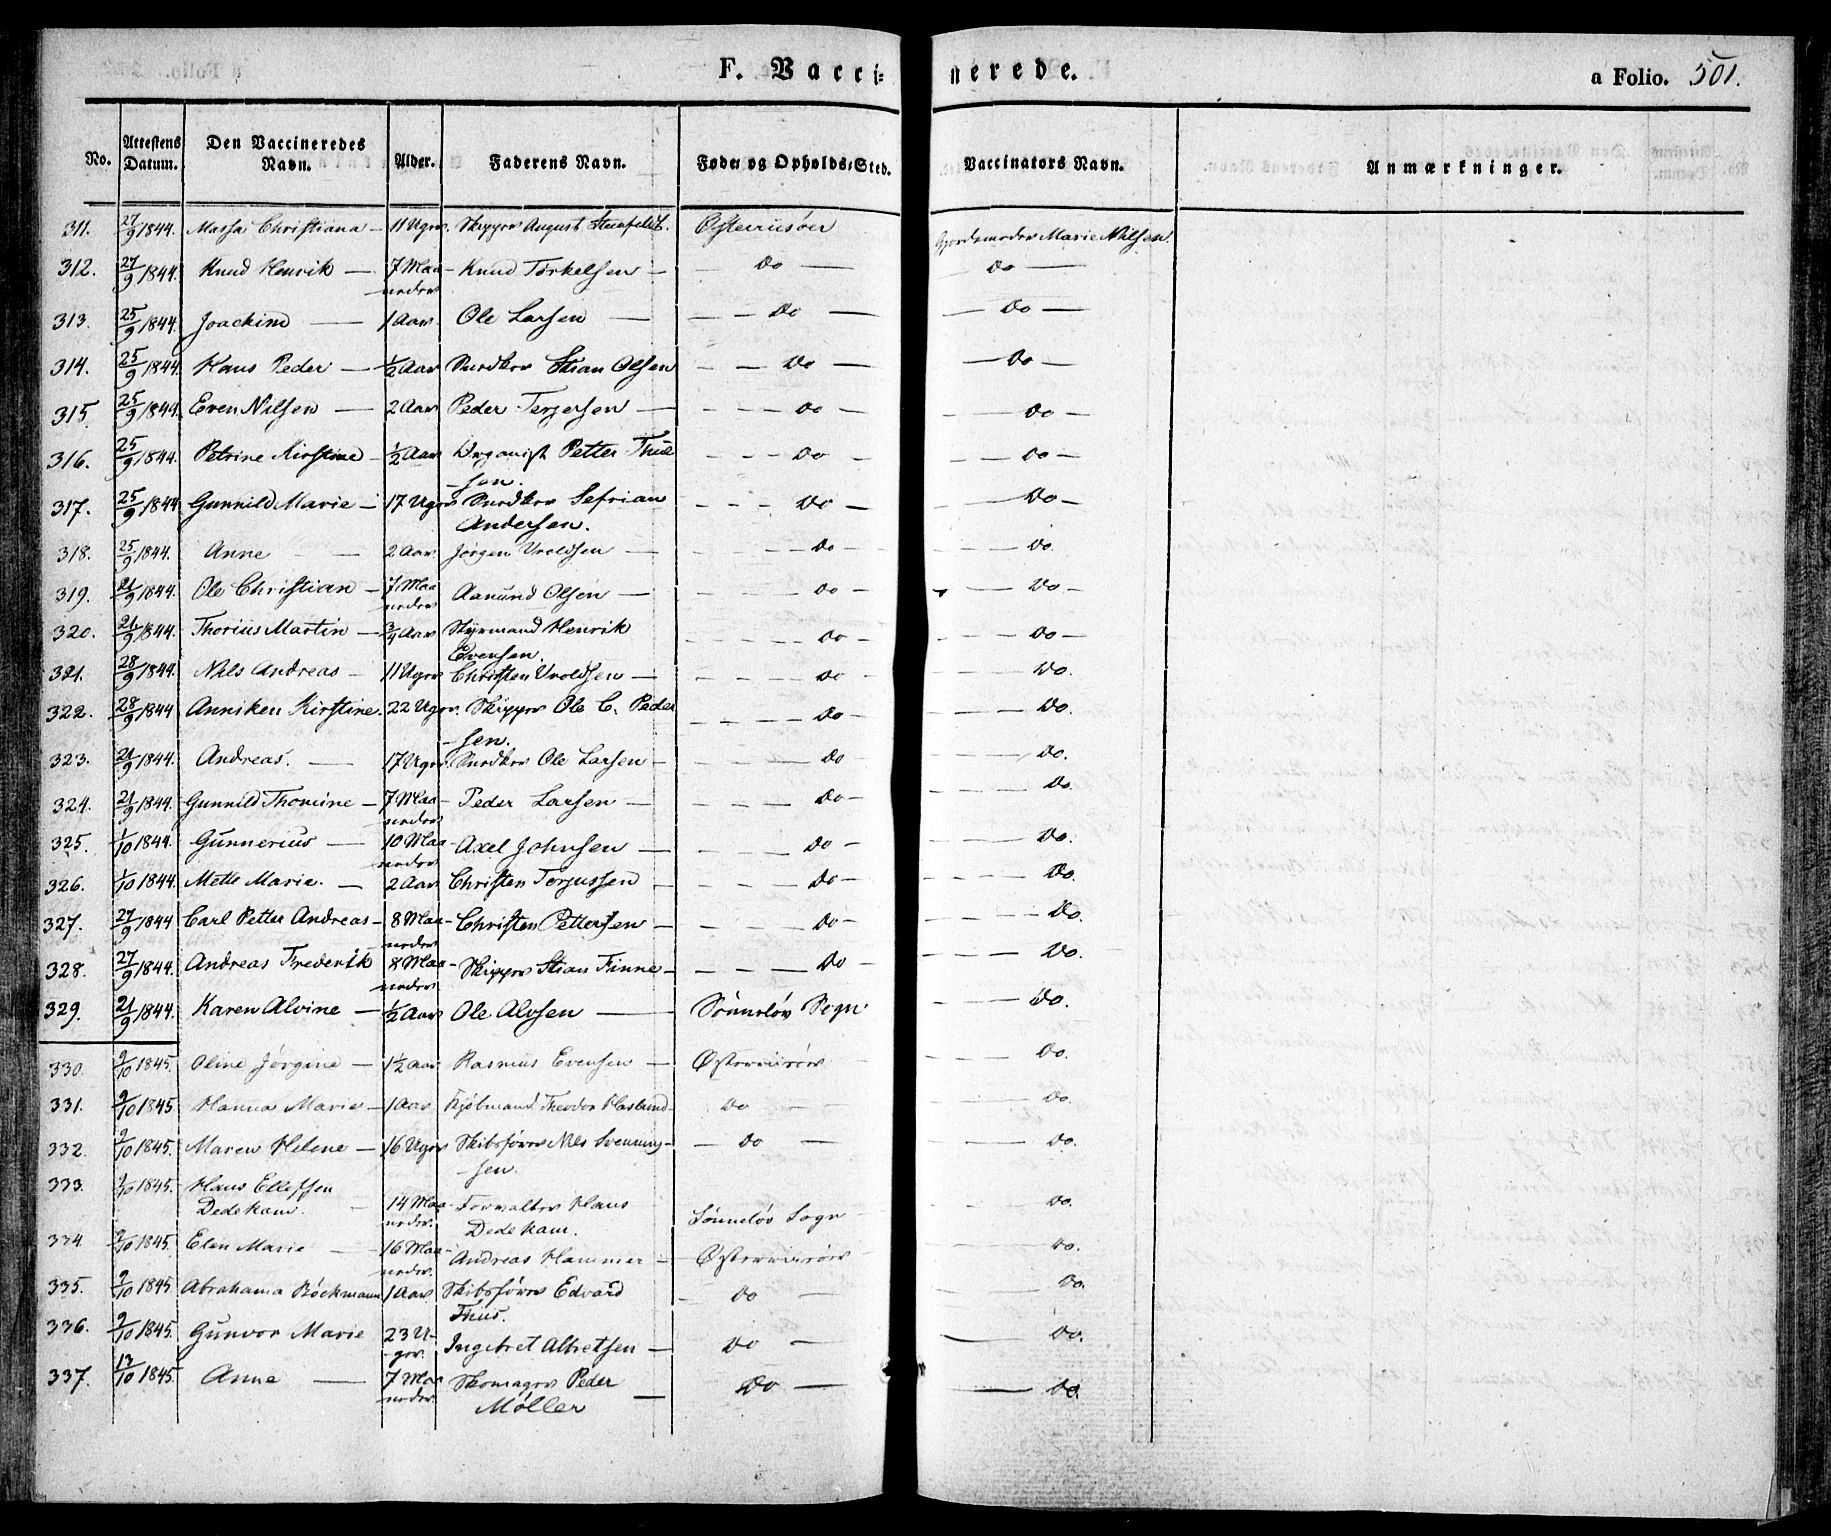 F. Vacci=
nerede.
a Folio. 501.
No. Attestens Datum. Den Vaccineredes Navn. Alder. Faderens Navn. Føde= og Opholds=Sted. Vaccinators Navn. Anmærkninger.
311. 27/9 1844. Christiana — 11 Uger. Skipper August Østerriisøer Gjordemoder Marie Nilsen.
312. 27/9 1844. Knud Henrik — 7 Maa- Knud Torkelsen — Do — — Do —
neder
313. 25/9 1844. Joachim — 1 Aar. Ole Larsen — — — Do — — Do —
314. 25/9 1844. Hans Peder — 1/2 Aar Stian Olsen — — Do — — Do —
315. 25/9 1844. Even Nilsen — 2 Aar Peder Terjersen — — — — Do — — — Do —
316. 25/9 1844. Petrine Kirstine — 1/2 Aar Organist Petter Thue — — — Do — — — Do —
sen.
317. 25/9 1844. Gunnild Marie — 17 Uger Sefrian — — — Do — — — Do —
Andersen.
318. 25/9 1844. Anne — 2 Aar Jørgen Uroldsen — — — — Do — — — Do.
319. 21/9 1844. Ole Christian — 7 Maa Aanund Olsen — — — — Do — — — Do —
neder
320. 26/9 1844. Thorius Martin — 3/4 Aar Styrmand Henrik — — — Do — — — Do —
Evensen.
321. 28/9 1844. Nils Andreas — 11 Uger Christen Uroldsen — — — — Do — — — Do.
322. 28/9 1844 Anniken Kirstine. 22 Uger. Skipper Ole C. Peder — — — Do — — — Do.
sen.
323. 21/9 1844. Andreas. — 17 Uger Ole Larsen — — — — Do — — — Do.
324. 21/9 1844. Gunnild Thomine — 7 Maa- Peder Larsen — — — — Do — — — Do.
neder
325. 1/10 1844. Gunnerius — 10 Maa- Axel Johnsen — — — — Do — — — Do.
neder
326. 1/10 1844. Mette Marie. — 2 Aar Christen Terjussen — — — — Do — — — Do.
327. 27/9 1844 Carl Petter Andreas — 8 Maa- Christen Pettersen — — — — Do — — — Do.
neder
328. 27/9 1844. Andreas Frederik 8 Maa- Skipper Stian Finne — — — — Do — — — Do.
neder
329. 21/9 1844. Karen Alvine — 1/2 Aar Ole Alvsen — Sønneløv Sogn — — Do.
330. 9/10 1845. Oline Jørgine — 1 1/2 Aar Rasmus Evensen — Østerriisøer — — Do.
331. 9/10 1845 Hanna Marie — 1 Aar Kjøbmand Theodor Haslund — Do — — — Do.
332. 9/10 1845. Maren Helene — 16 Uger Skibsfører Nils Svenning- — Do — — — Do.
sen.
333. 9/10 1845. Hans Ellefsen
Dedekam. — 14 Maa- Forvalter Hans Sønneløv Sogn — — Do.
neder. Dedekam.
334. 9/10 1845. Elen Marie — 16 Maa- Andreas Hammer — Østerriisøer — — — Do.
neder.
335. 9/10 1845. Abrahama Bøckmann 1 Aar Skibsfører Edvard — Do — — — Do.
Thue.
336. 9/10 1845. Gunvor Marie 23 U- Ingebret Albretsen — Do — — Do.
ger.
337. 13/10 1845. Anne — 7 Maa Skomager Peder Do — — Do.
neder Møller —